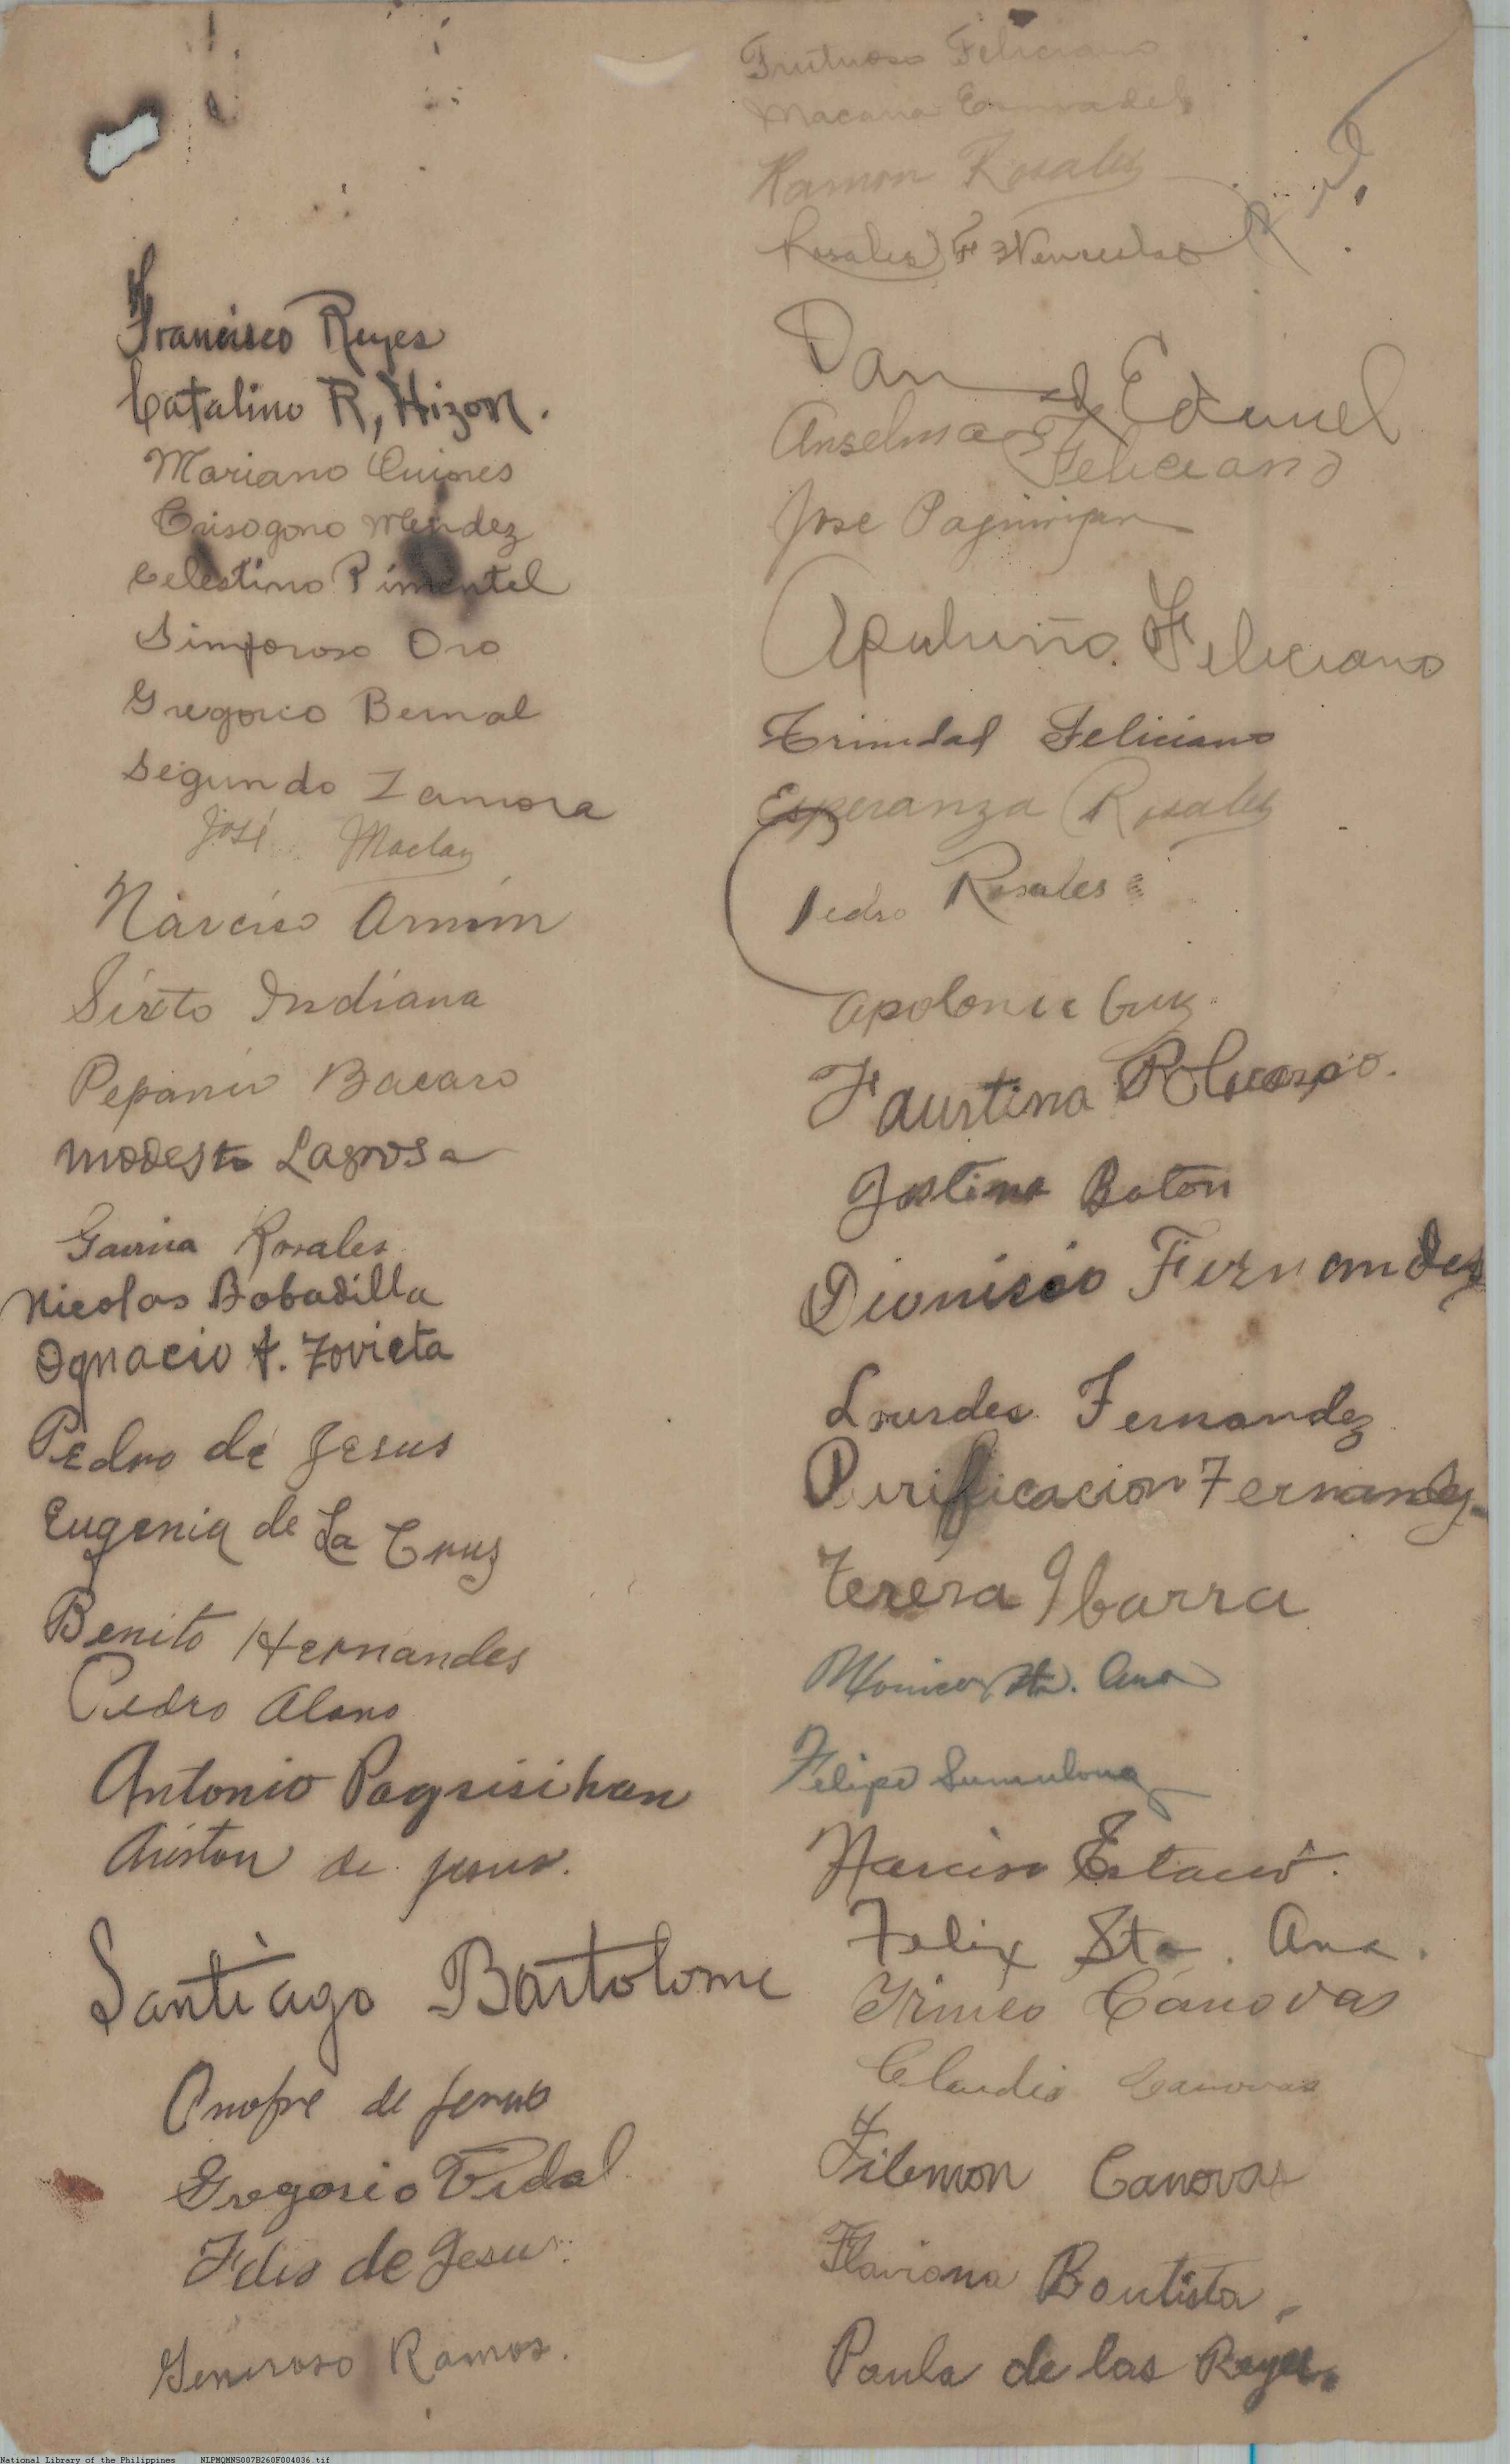 Francisco Reyes
Catalino R, Hizon.
Mariano Quiones
Crisogono Mendez
Celestino Pimentel
Simporoso Oro
Gregorio Bernal
Segundo Zamora
José Maclang
Narciso
Sixto Indiana
Bacaro
Modesto Lagrosa
Rosales
Nicolas Bobadilla
Ignacio A. Zovieta
Pedro de Jesus
Eugenia de La Cruz
Benito Hernandes
Pedro Alano
Antonio Pagsisihan
Ariston de Jesus.
Santiago Bartolome
Onofre de Jesus
Gregorio Vidal
de Jesus
Generoso Ramos.
Frutuoso Feliciano
Ramon Rosales
Rosales F
Anselma
Feliciano
Jose
Feliciano
Trinidad Feliciano
Esperanza Rosales
Pedro Rosales
Apolonia Cruz
Faustina Policarpio.
Justina Baton
Dionisio Fernandez
Lourdes Fernandez
Purificacion Fernandez
Teresa Ibarra
Monico Sta. Ana
Felipe Sumulong
Narciso
Felix Sta. Ana.
Irineo Canovas
Claudio Canovas
Filemon Canovas
Flaviana Bautista,
Paula de las Reyes.
National Library of the Philippines NLPMQMNS007B260F004036.tif